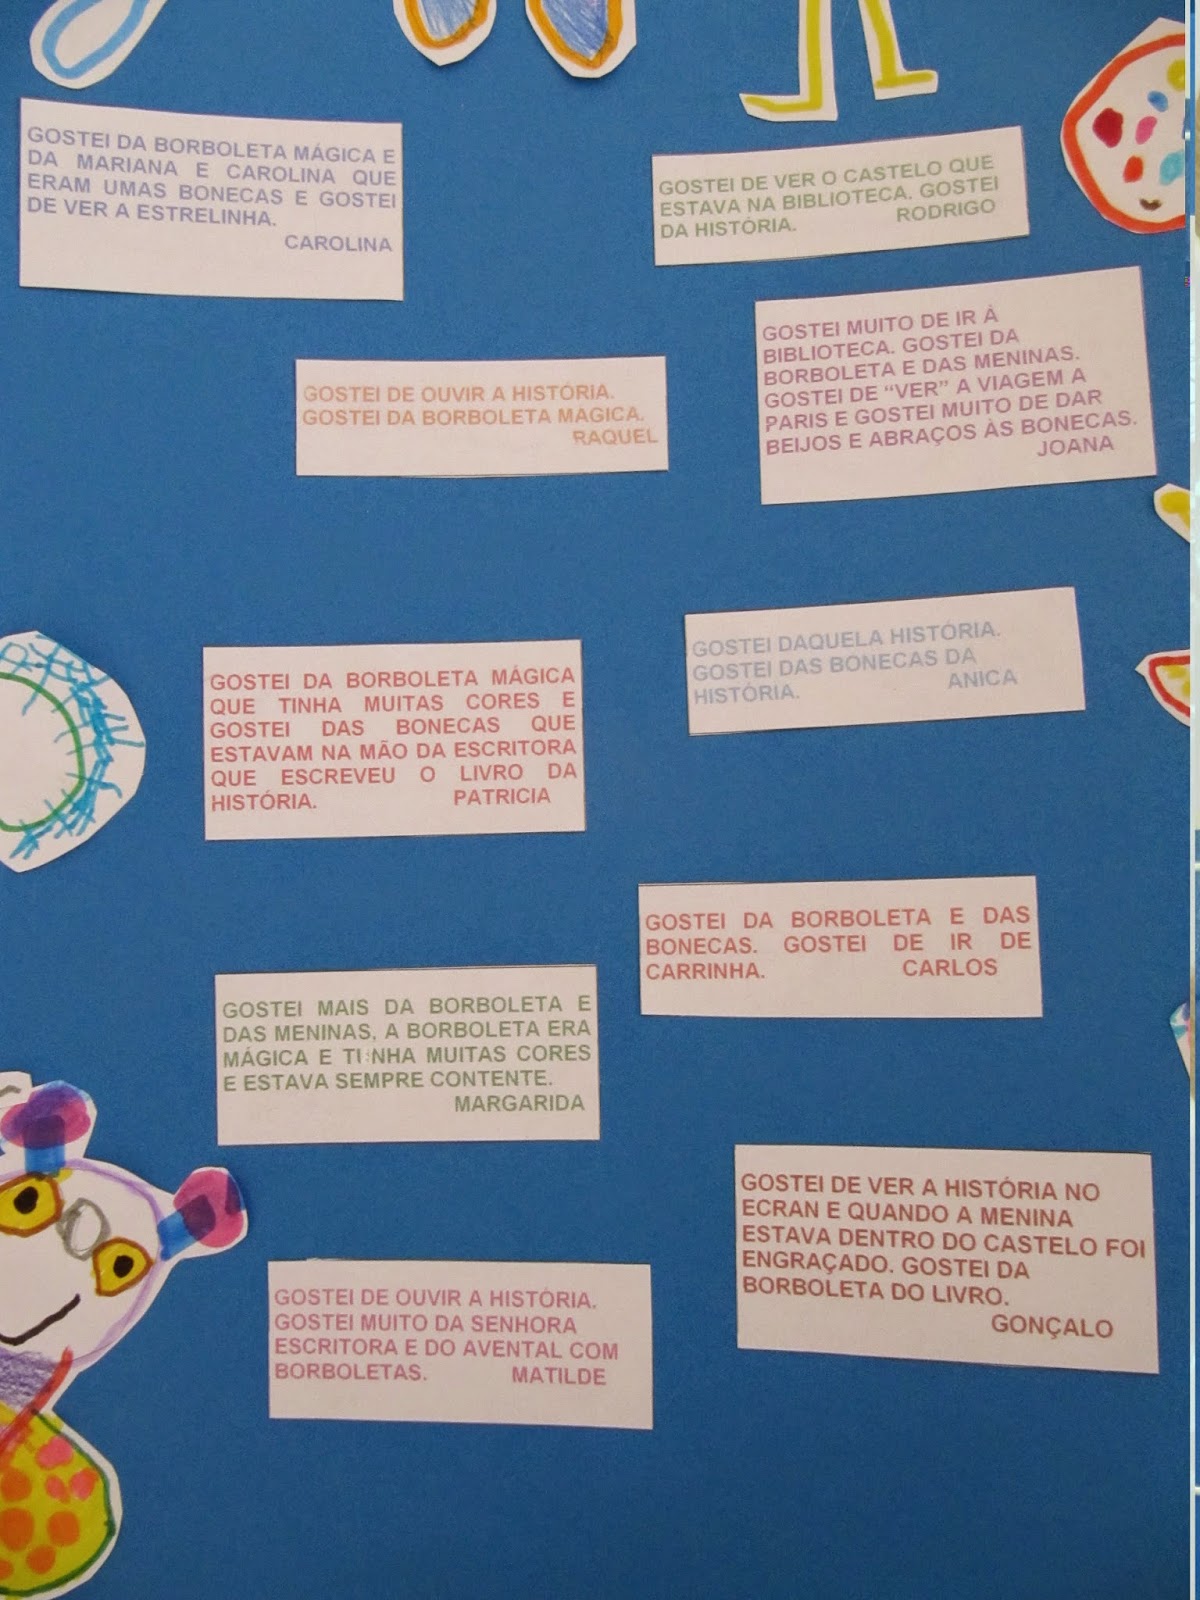 GOSTEI DA BORBOLETA MÁGICA E
DA MARIANA E CAROLINA QUE
ERAM UMAS BONECAS E GOSTEI
DE VER A ESTRELINHA.
CAROLINA
GOSTEI DE VER O CASTELO QUE
ESTAVA NA BIBLIOTECA. GOSTEI
DA HISTÓRIA. RODRIGO
GOSTEI DE OUVIR A HISTÓRIA.
GOSTEI DA BORBOLETA MAGICA.
RAQUEL
GOSTEI MUITO DE IR À
BIBLIOTECA. GOSTEI DA
BORBOLETA E DAS MENINAS.
GOSTEI DE “VER” A VIAGEM A
PARIS E GOSTEI MUITO DE DAR
BEIJOS E ABRAÇOS ÀS BONECAS.
JOANA
GOSTEI DA BORBOLETA MÁGICA
QUE TINHA MUITAS CORES E
GOSTEI DAS BONECAS QUE
ESTAVAM NA MÃO DA ESCRITORA
QUE ESCREVEU O LIVRO DA
HISTÓRIA. PATRICIA
GOSTEI DAQUELA HISTÓRIA.
GOSTEI DAS BONECAS DA
HISTÓRIA. ANICA
GOSTEI DA BORBOLETA E DAS
BONECAS. GOSTEI DE IR DE
CARRINHA. CARLOS
GOSTEI MAIS DA BORBOLETA E
DAS MENINAS, A BORBOLETA ERA
MÁGICA E TINHA MUITAS CORES
E ESTAVA SEMPRE CONTENTE.
MARGARIDA
GOSTEI DE VER A HISTÓRIA NO
ECRAN E QUANDO A MENINA
ESTAVA DENTRO DO CASTELO FOI
ENGRAÇADO. GOSTEI DA
BORBOLETA DO LIVRO.
GONÇALO
GOSTEI DE OUVIR A HISTÓRIA.
GOSTEI MUITO DA SENHORA
ESCRITORA E DO AVENTAL COM
BORBOLETAS. MATILDE